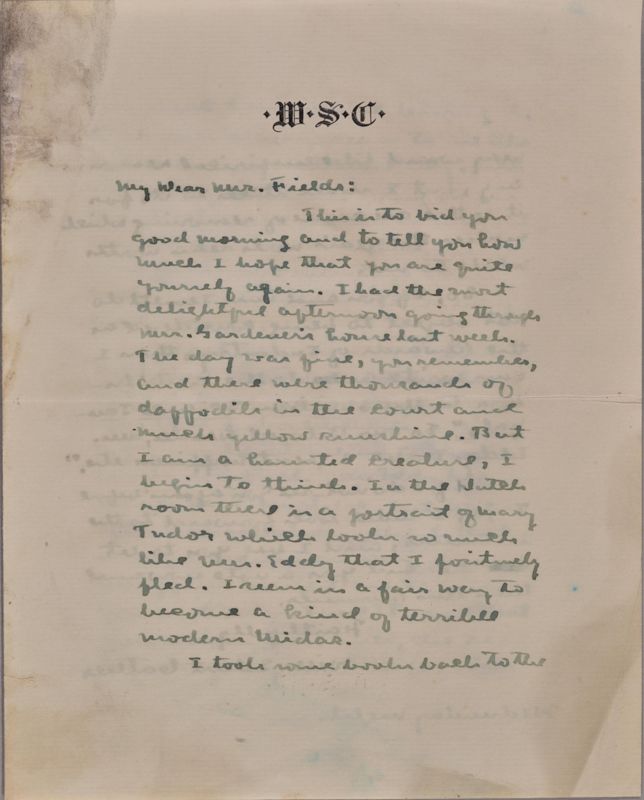 ·W·S·C·
My Dear Mrs. Fields:
This is to bid you
good morning and to tell you how
much I hope that you are quite
yourself again. I had the most
delightful afternoon going through
Mrs. Gardener's house last week.
The day was fine, you remember,
and there were thousands of
daffodils in the court and
much yellow sunshine. But
I am a haunted creature, I
begin to think. In the Dutch
room there is a portrait of Mary
Tudor which looks so much
like Mrs. Eddy that I positively
fled. I seem in a fair way to
become a kind of terrible
modern Midas.
I took some books back to the